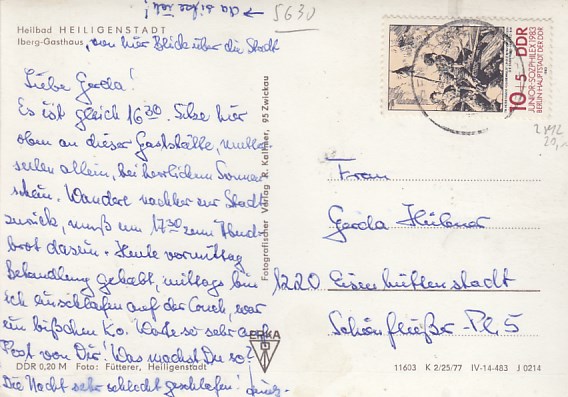 → da sitze ich!
5630
Heilbad HEILIGENSTADT
Iberg-Gasthaus, von hier Blick über die Stadt
Liebe Gerda!
Es ist gleich 16³⁰. Sitze hier
oben an dieser Gaststätte, mutter-
seelen allein, bei herrlichem Sonnen-
schein. Wandere nachher zur Stadt
zurück, muß um 17³⁰ zum Abend-
brot dasein. Heute vormittag
Behandlung gehabt, mittags bin
ich eingeschlafen auf der Couch, war
ein bißchen Ko. Warte so sehr auf
Post von Dir! Was machst Du so?
DDR 0,20 M Foto: Fütterer, Heiligenstadt
Die Nacht sehr schlecht geschlafen!
Fotografischer Verlag R. Kallmer, 95 Zwickau
ERKA
10+5 DDR
JUNIOR-SOZPHILEX 1983
BERLIN-HAUPTSTADT DER DDR
Frau
Gerda Hübner
1220 Eisenhüttenstadt
Schönfließer-Pl. 5
11603 K 2/25/77 IV-14-483 J 0214